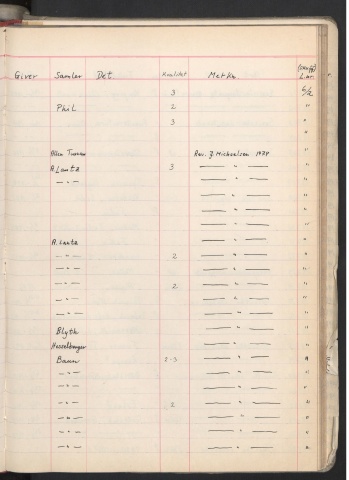 Giver Samler Det. Kvalitet Merkn. L.nr.
3 "
Phil 2 "
3 "
"
Allen Turner Rev. J. Michaelsen 1934 "
A. Lantz 3 — " — "
— " — — " — "
— " — "
— " — "
— " — "
A. Lantz — " — "
— " — 2 — " — "
— " — — " — "
— " — 2 — " — "
— " — — " — "
— " — — " — "
Blyth — " — "
Hesselberger — " — "
Baun 2-3 — " — "
— " — — " — "
— " — — " — "
— " — 2 — " — "
— " — — " — "
— " — — " — "
— " — — " — "